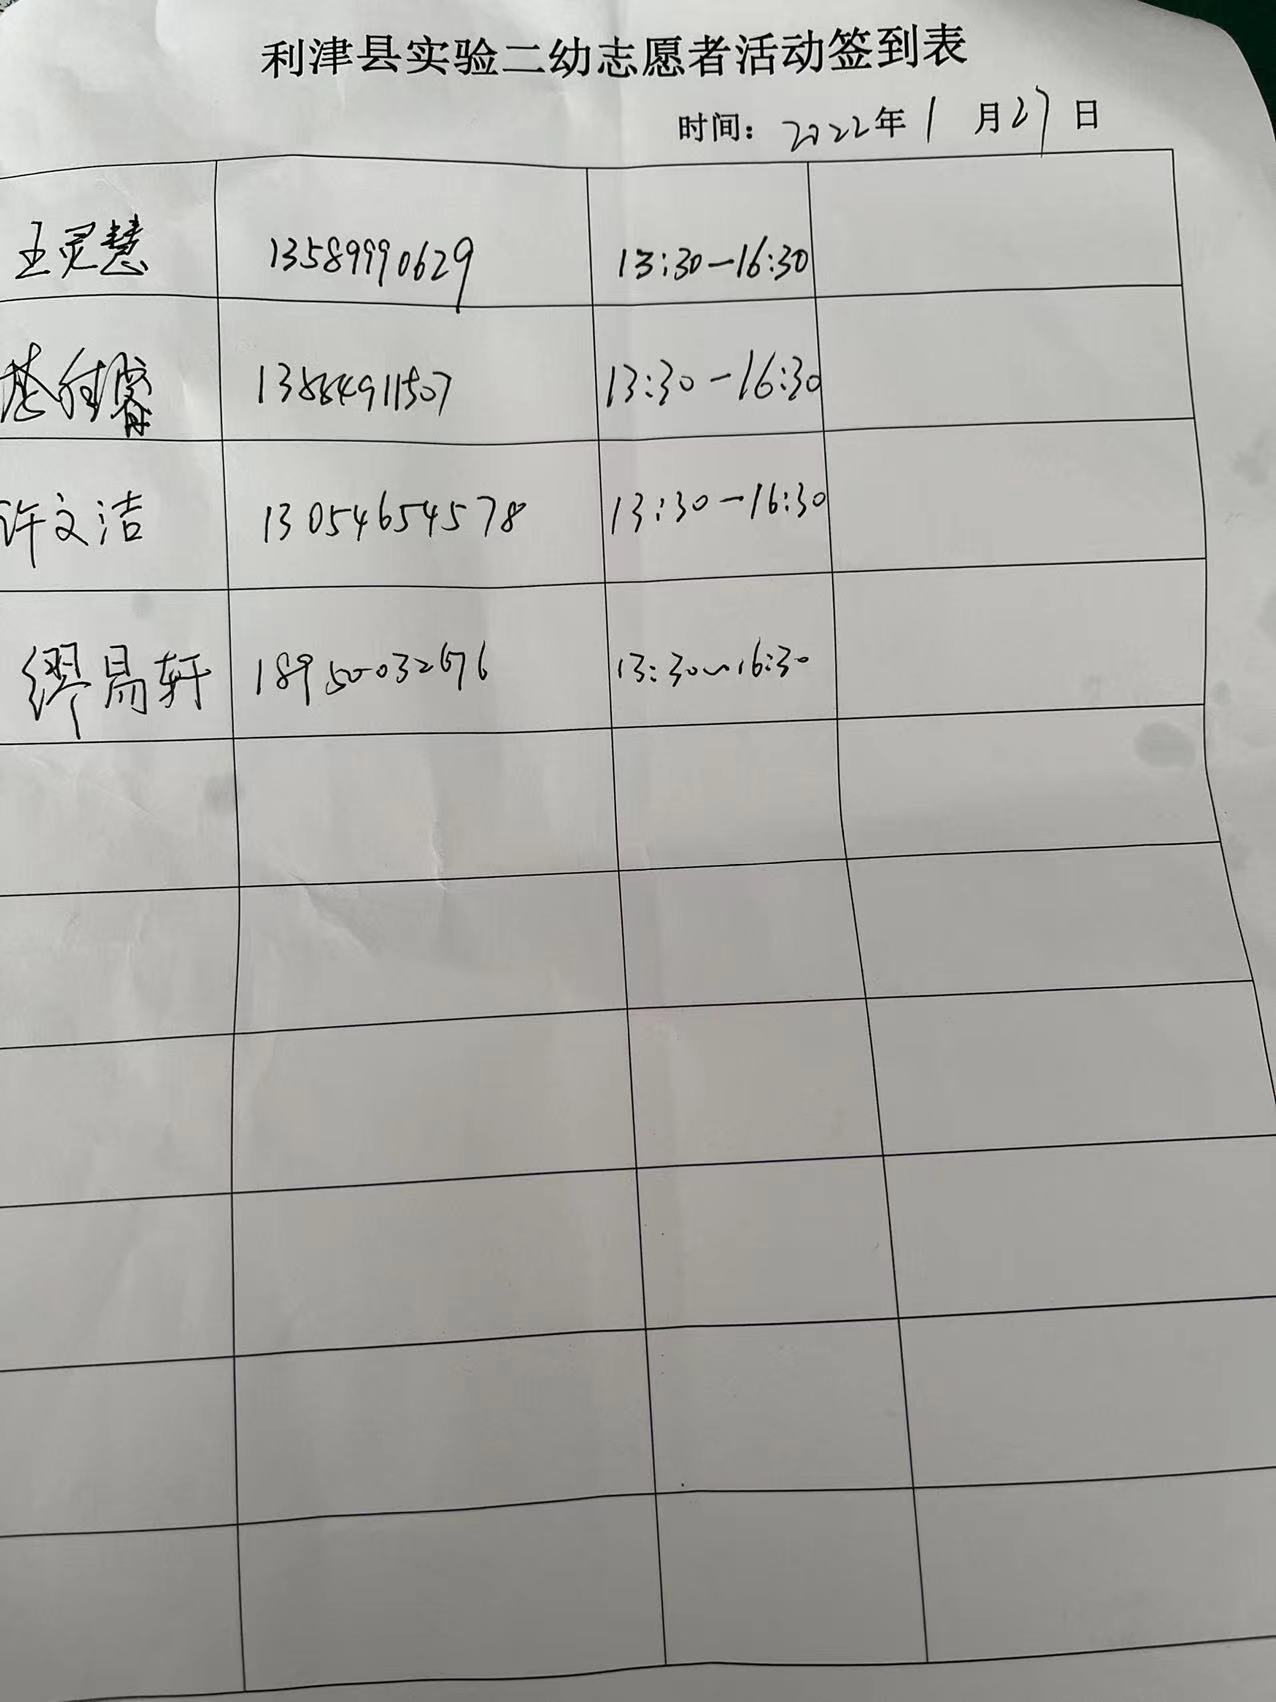 利津县实验二幼志愿者活动签到表
时间：2022年1月27日
王灵慧 13589990629 13:30-16:30
13884911507 13:30-16:30
许文洁 13054654578 13:30-16:30
缪易轩 18950032676 13:30~16:30